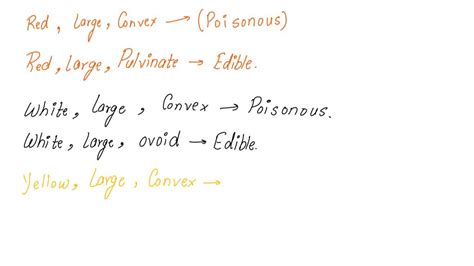 Red, Large, Convex → (Poisonous)
Red, large, Pulvinate → Edible.
White, Large, Convex → Poisonous.
White, Large, ovoid → Edible.
Yellow, Large, Convex →